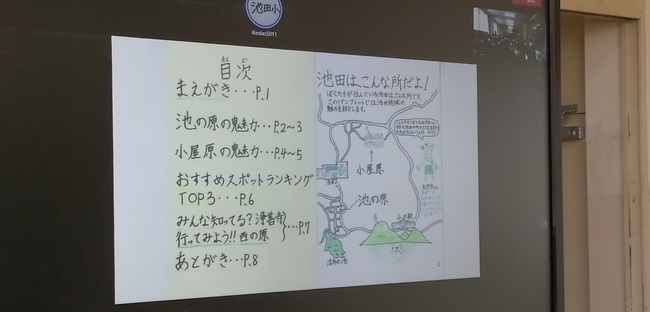 池田小
ikedas5011
目次
もくじ
まえがき･･･P.1
池の原の魅力･･･P.2～3
小屋原の魅力･･･P.4～5
おすすめスポットランキング
TOP3･･･P.6
みんな知ってる?浄善寺
行ってみよう!!西の原
･･･P.7
あとがき･･･P.8
池田は、こんな所だよ!
ぼくたちが住んでいる池田はこんな所です。
このパンフレットでは池田地域の
魅力を紹介します。
小屋原
池の原